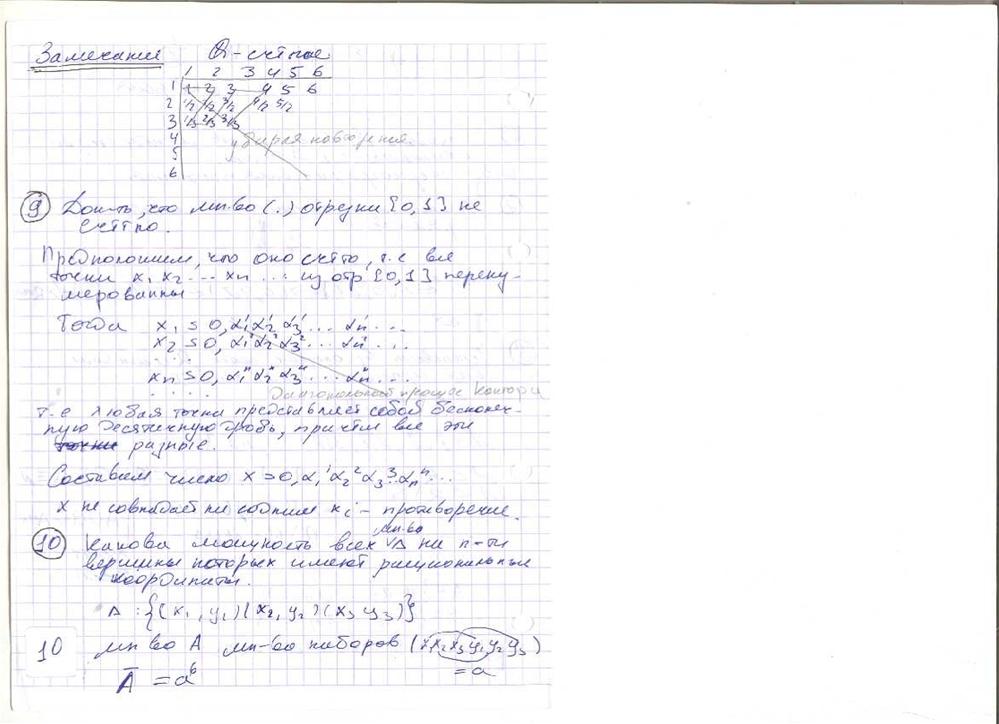 Замечание Q - счётное
1 2 3 4 5 6
1 1 2 3 4 5 6
2 1/2 2/2 3/2 4/2 5/2
3 1/3 2/3 3/3
4 убирая повторения.
5
6
9 Док-ть, что мн-во (.) отрезка [0,1] не
счётно.
Предположим, что оно счётно, т.е все
точки x₁ x₂ ... xn ... из отр [0,1] перену-
мерованны
Тогда x₁ = 0, α₁¹ α₂¹ α₃¹ ... αn¹ ...
x₂ = 0, α₁² α₂² α₃² ... αn² ...
. . . .
xn = 0, α₁ⁿ α₂ⁿ α₃ⁿ ... αnⁿ ...
. . . . . Диагональный процесс Кантора
т.е любая точка представляет собой бесконеч-
ную десятичную дробь, причём все эти
разные.
Составим число x = 0, α₁¹ α₂² α₃³ ... αnⁿ ...
x не совпадает ни с одним xi - противоречие.
10 Какова мощность мн-ва всех Δ на п-ти
вершины которых имеют рациональные
координаты.
Δ : {(x₁, y₁)(x₂, y₂)(x₃ y₃)}
10 мн во A мн-во наборов (x₁x₂x₃y₁y₂y₃)
A = a⁶ = a